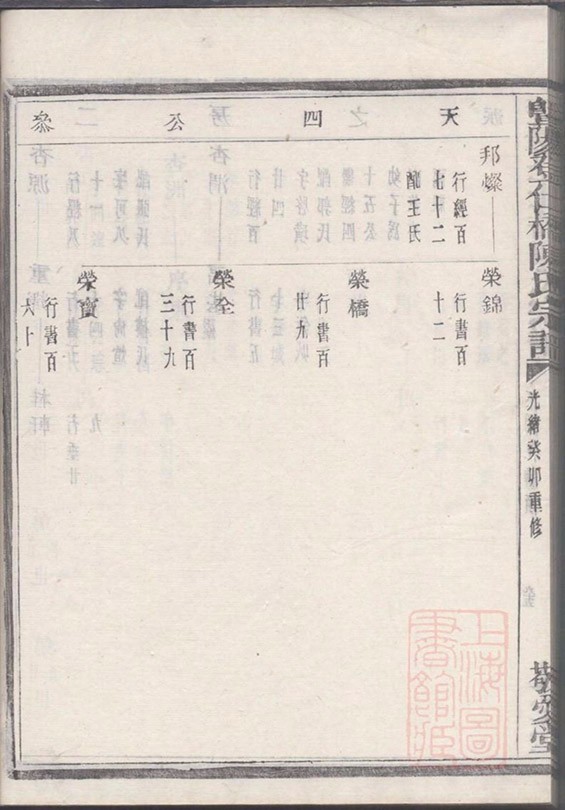 陳氏宗譜
光緒癸卯重修
天四公
邦燦
行經百
七十二
配王氏
榮錦
行書百
十二
榮橋
行書百
廿九
榮全
行書百
三十九
榮寶
行書百
六十
上海圖
書館藏